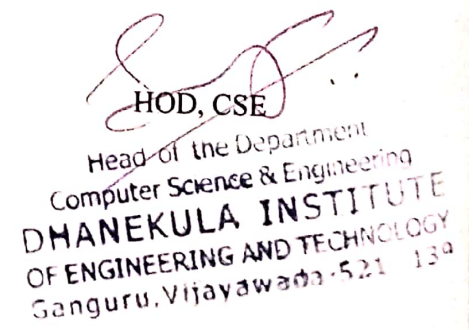 HOD, CSE
Head of the Department
Computer Science & Engineering
DHANEKULA INSTITUTE
OF ENGINEERING AND TECHNOLOGY
Ganguru, Vijayawada-521 139